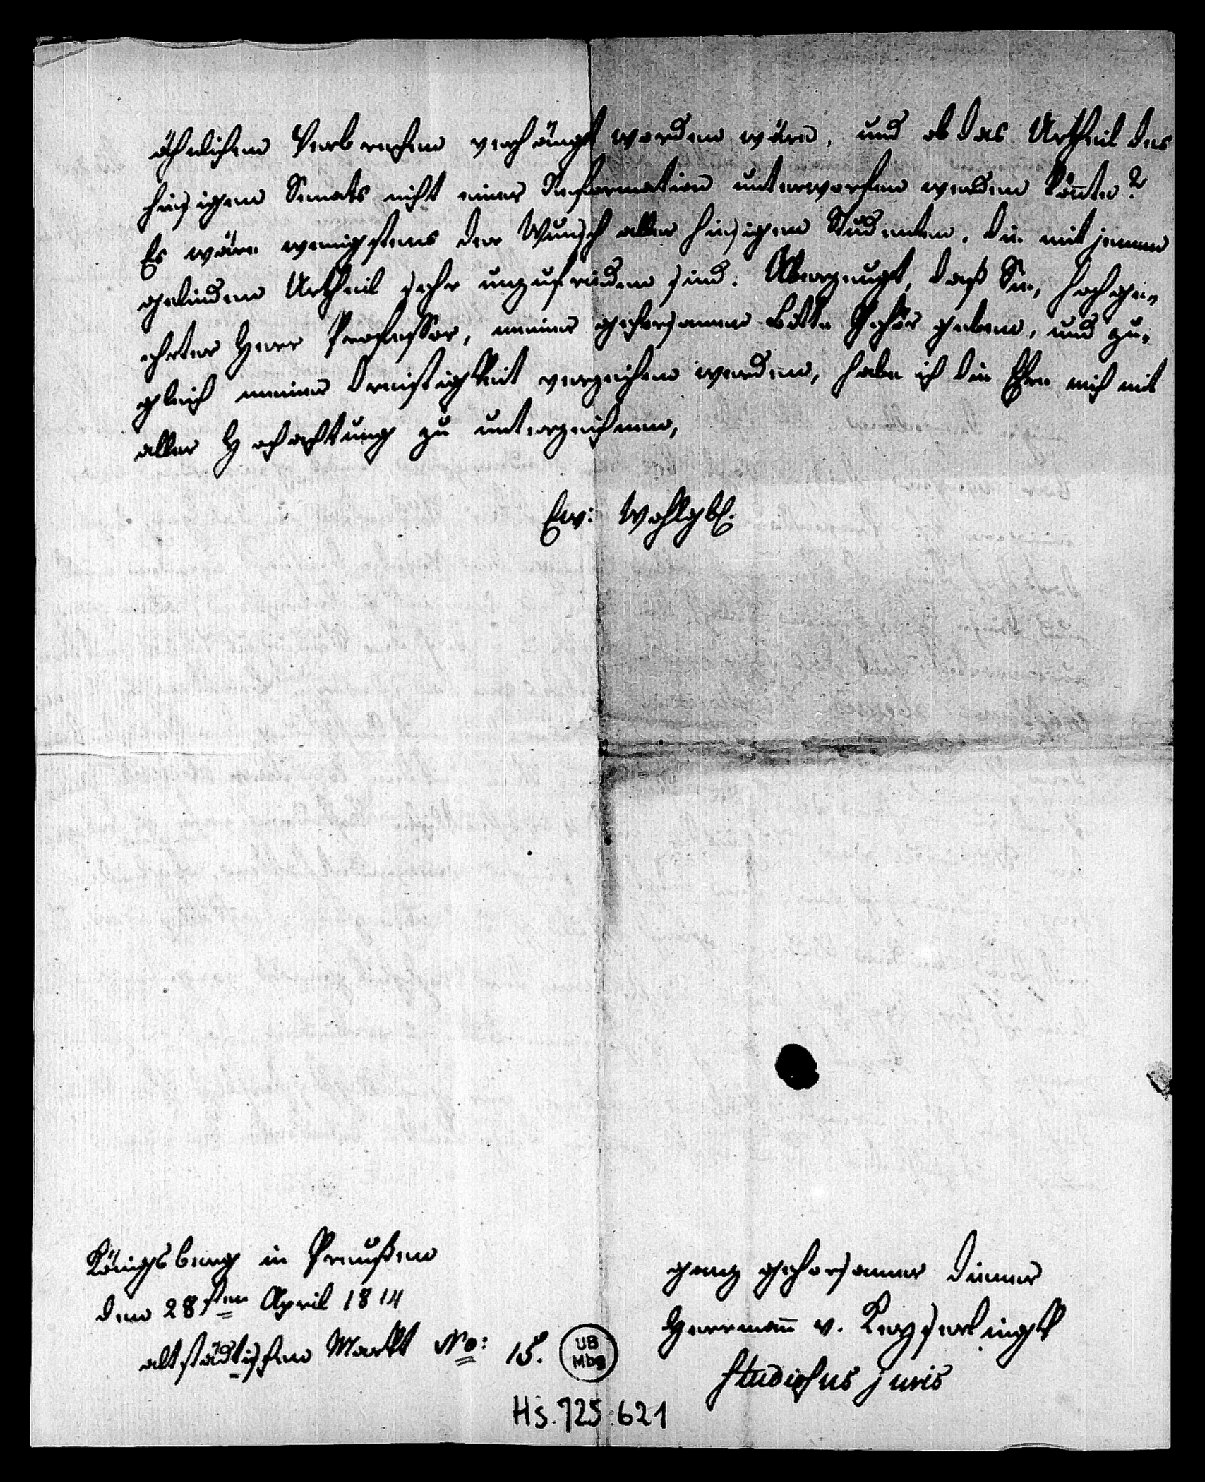 ähnlichem Verbrechen verhängt worden wäre, und ob das Urtheil des
hiesigen Senats nicht einer Information unterworfen werden köñte?
Es wäre wenigstens der Wunsch aller hiesigen Studenten, die mit jenem
gelinden Urtheil sehr unzufrieden sind. Überzeugt, daß Sie, hochge¬
ehrter Herr Professor, meiner gehorsamen Bitte Gehör geben, und zu¬
gleich meiner Dreistigkeit verzeihen werden, habe ich die Ehre mich mit
aller Hochachtung zu unterzeichnen,
Ew: Wohlgb.
Königsberg in Preußen
den 28sten April 1814
altstädtischen Markt No: 15.
ganz gehorsamer Diener
Herrmañ v. Keyserlingk
studiosus juris
UB
Mbg
Hs. 725:621